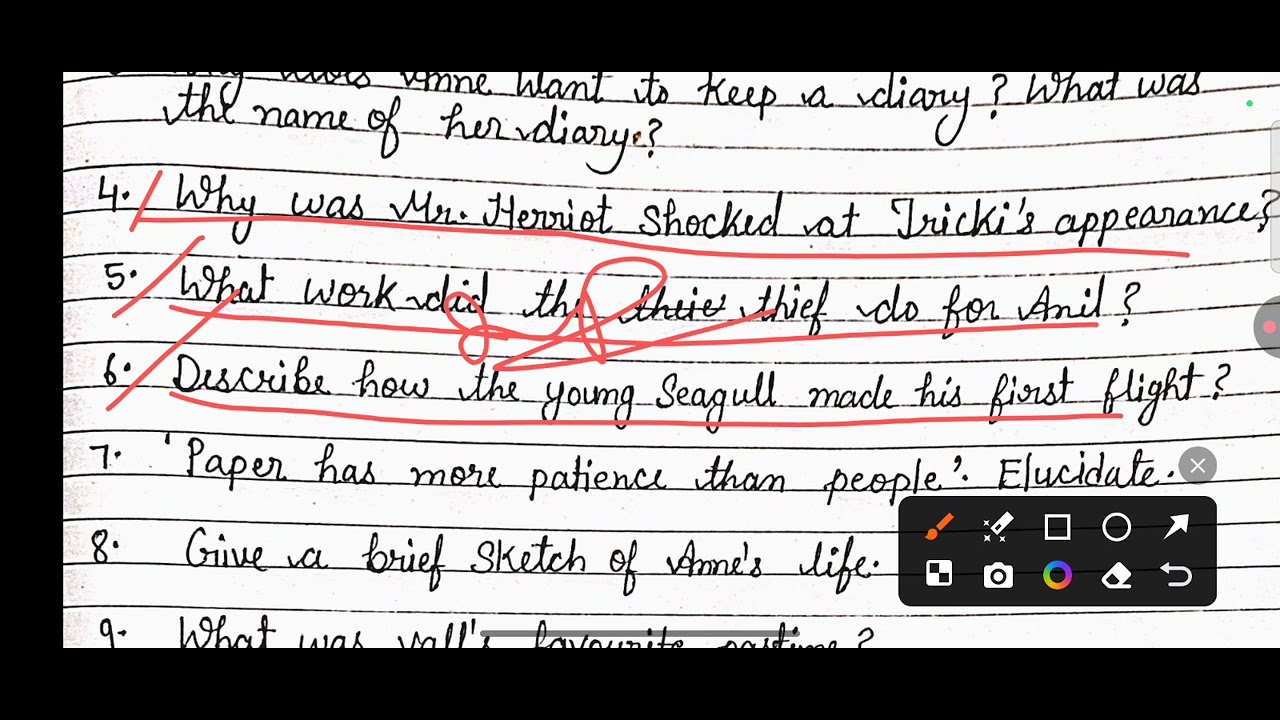 Anne want to keep a diary? What was
the name of her diary?
4. Why was Mr. Herriot shocked at Tricki's appearance?
5. What work did the thief do for Anil?
6. Describe how the young Seagull made his first flight?
7. 'Paper has more patience than people'. Elucidate.
8. Give a brief sketch of Anne's life.
9. What was favourite pastime?